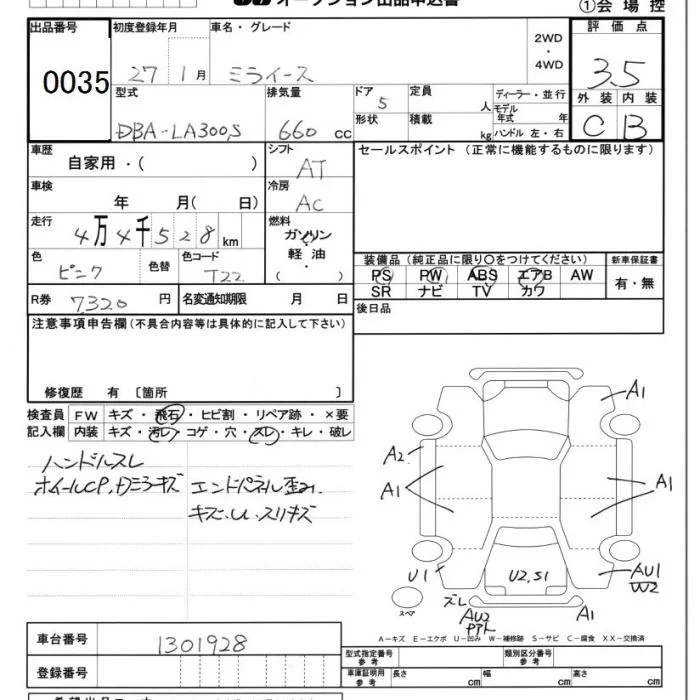 オークション出品申込書
①会場控
出品番号 0035
初度登録年月 27年 1月
車名・グレード ミライース
2WD・4WD
評価点 3.5
型式 DBA-LA300S
排気量 660cc
ドア 5
形状
定員 人
積載 kg
ディーラー・並行
モデル年式 年
ハンドル 左・右
外装 C 内装 B
車歴 自家用・( )
シフト AT
セールスポイント(正常に機能するものに限ります)
車検 年 月( 日)
冷房 AC
走行 4万4千528km
燃料 ガソリン 軽油 ・( )
色 ピンク 色替
色コード T22
装備品(純正品に限り○をつけてください)
新車保証書
PS PW ABS エアB AW
SR ナビ TV カワ
有・無
R券 7320円
名変通知期限 月 日
後日品
注意事項申告欄(不具合内容等は具体的に記入して下さい)
修復歴 有 〔箇所 〕
検査員 FW キズ・飛石・ヒビ割・リペア跡・×要
記入欄 内装 キズ・汚レ・コゲ・穴・スレ・キレ・破レ
ハンドルスレ
ホイールCP、Dミラーキズ
エンドパネル歪み.
キズ・U・スリキズ
A1
A2
A1
A1
U1
U2,S1
AU1
W2
スペア
ズレ
AU2
Pアト
A1
A-キズ E-エクボ U-凹み W-補修跡 S-サビ C-腐食 XX-交換済
車台番号 1301928
登録番号
型式指定番号 参考
類別区分番号 参考
車庫証明用 参考 長さ cm 幅 cm 高さ cm